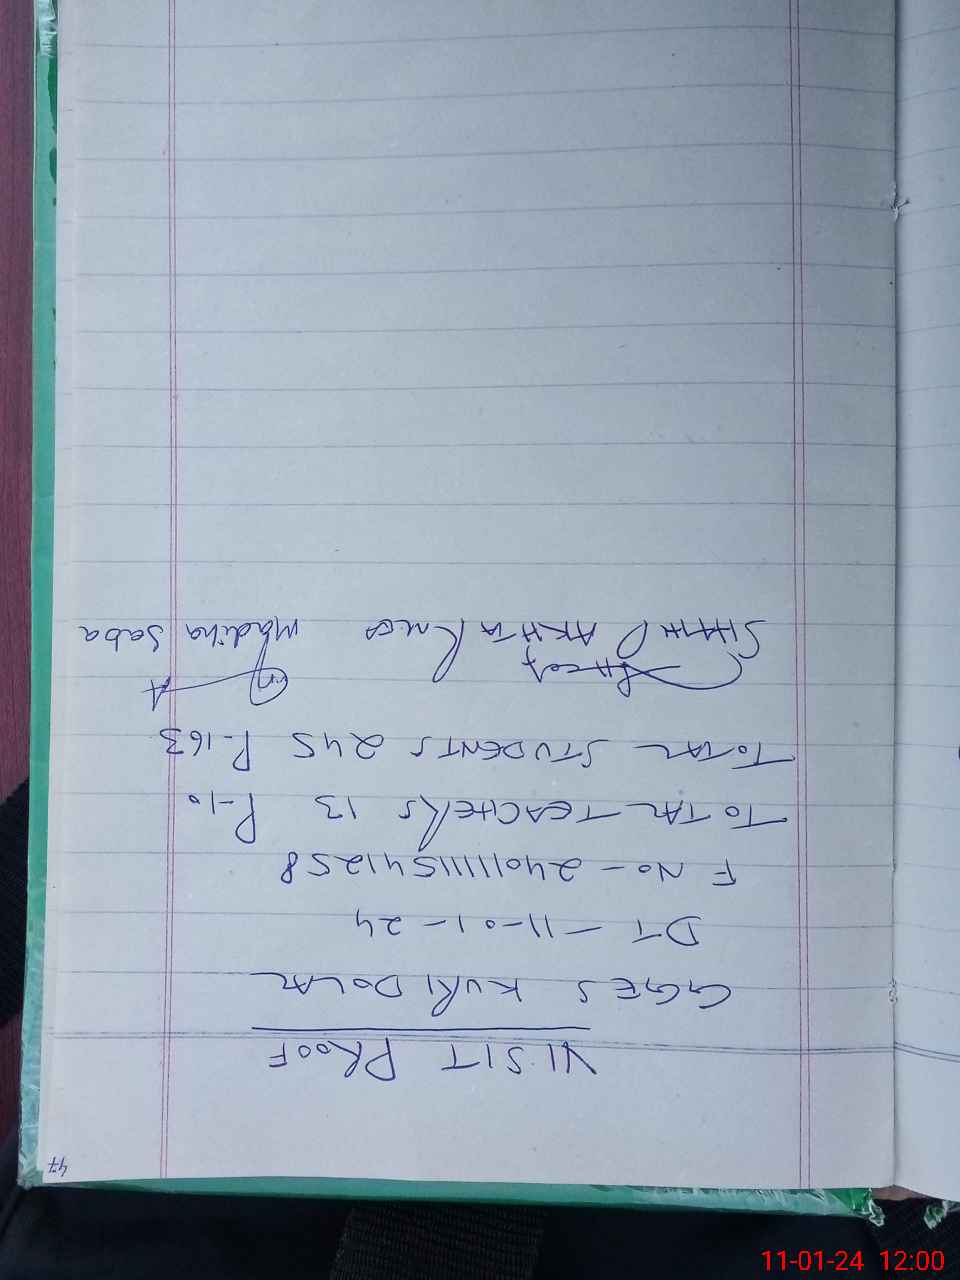 47
VISIT PROOF
GGES KURI DOLAL
DT - 11-01-24
F No - 2401111541258
TOTAL TEACHERS 13 P-10
TOTAL STUDENTS 245 P-163
SHAHID AKHTAR MEA Madiha Saba
11-01-24 12:00